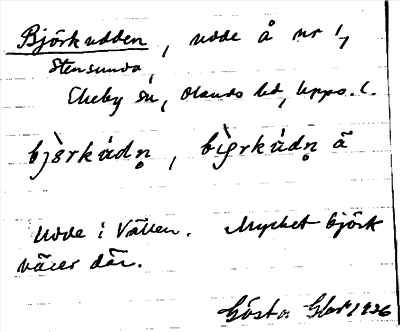 Björkudden, udde å nr 1/7
Stensunda,
Ekeby sn, Olands hd, Upps. l.
bjǝrkádn̥, bìǝrkádn̥ ã
Udde i Vällen. Mycket björk
växer där.
Gösta 1926